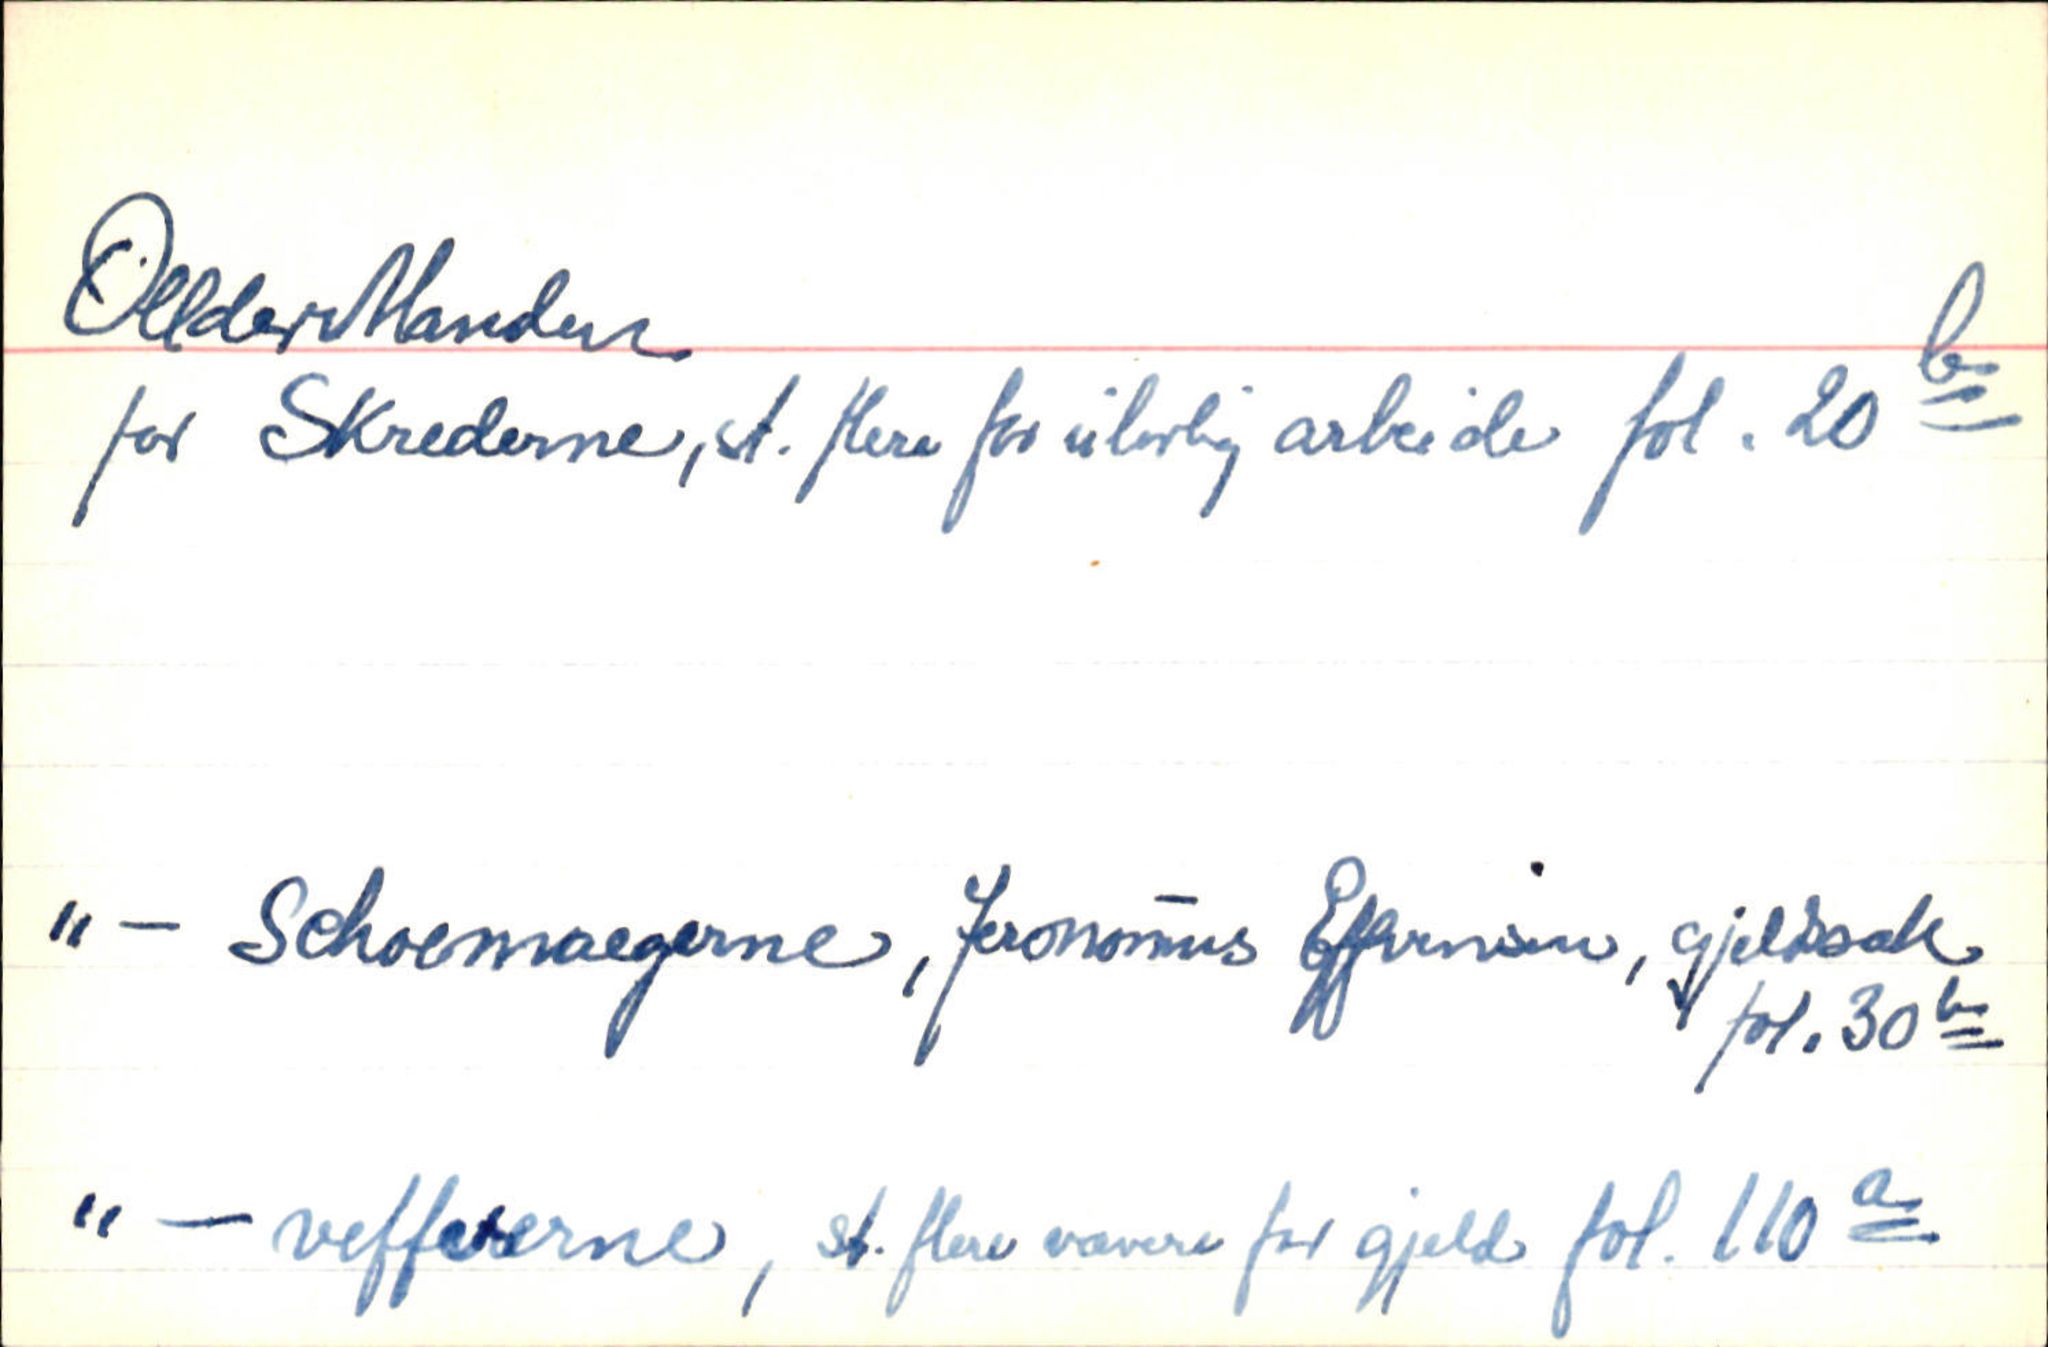 OlderManden
for Skrederne, st. flere for ulovlig arbeide fol. 20 b
" — Schoemaegerne, Jeronomus, gjeldssak
fol. 30 b
" — vefferne, st. flere vævere for gjeld fol. 110 a